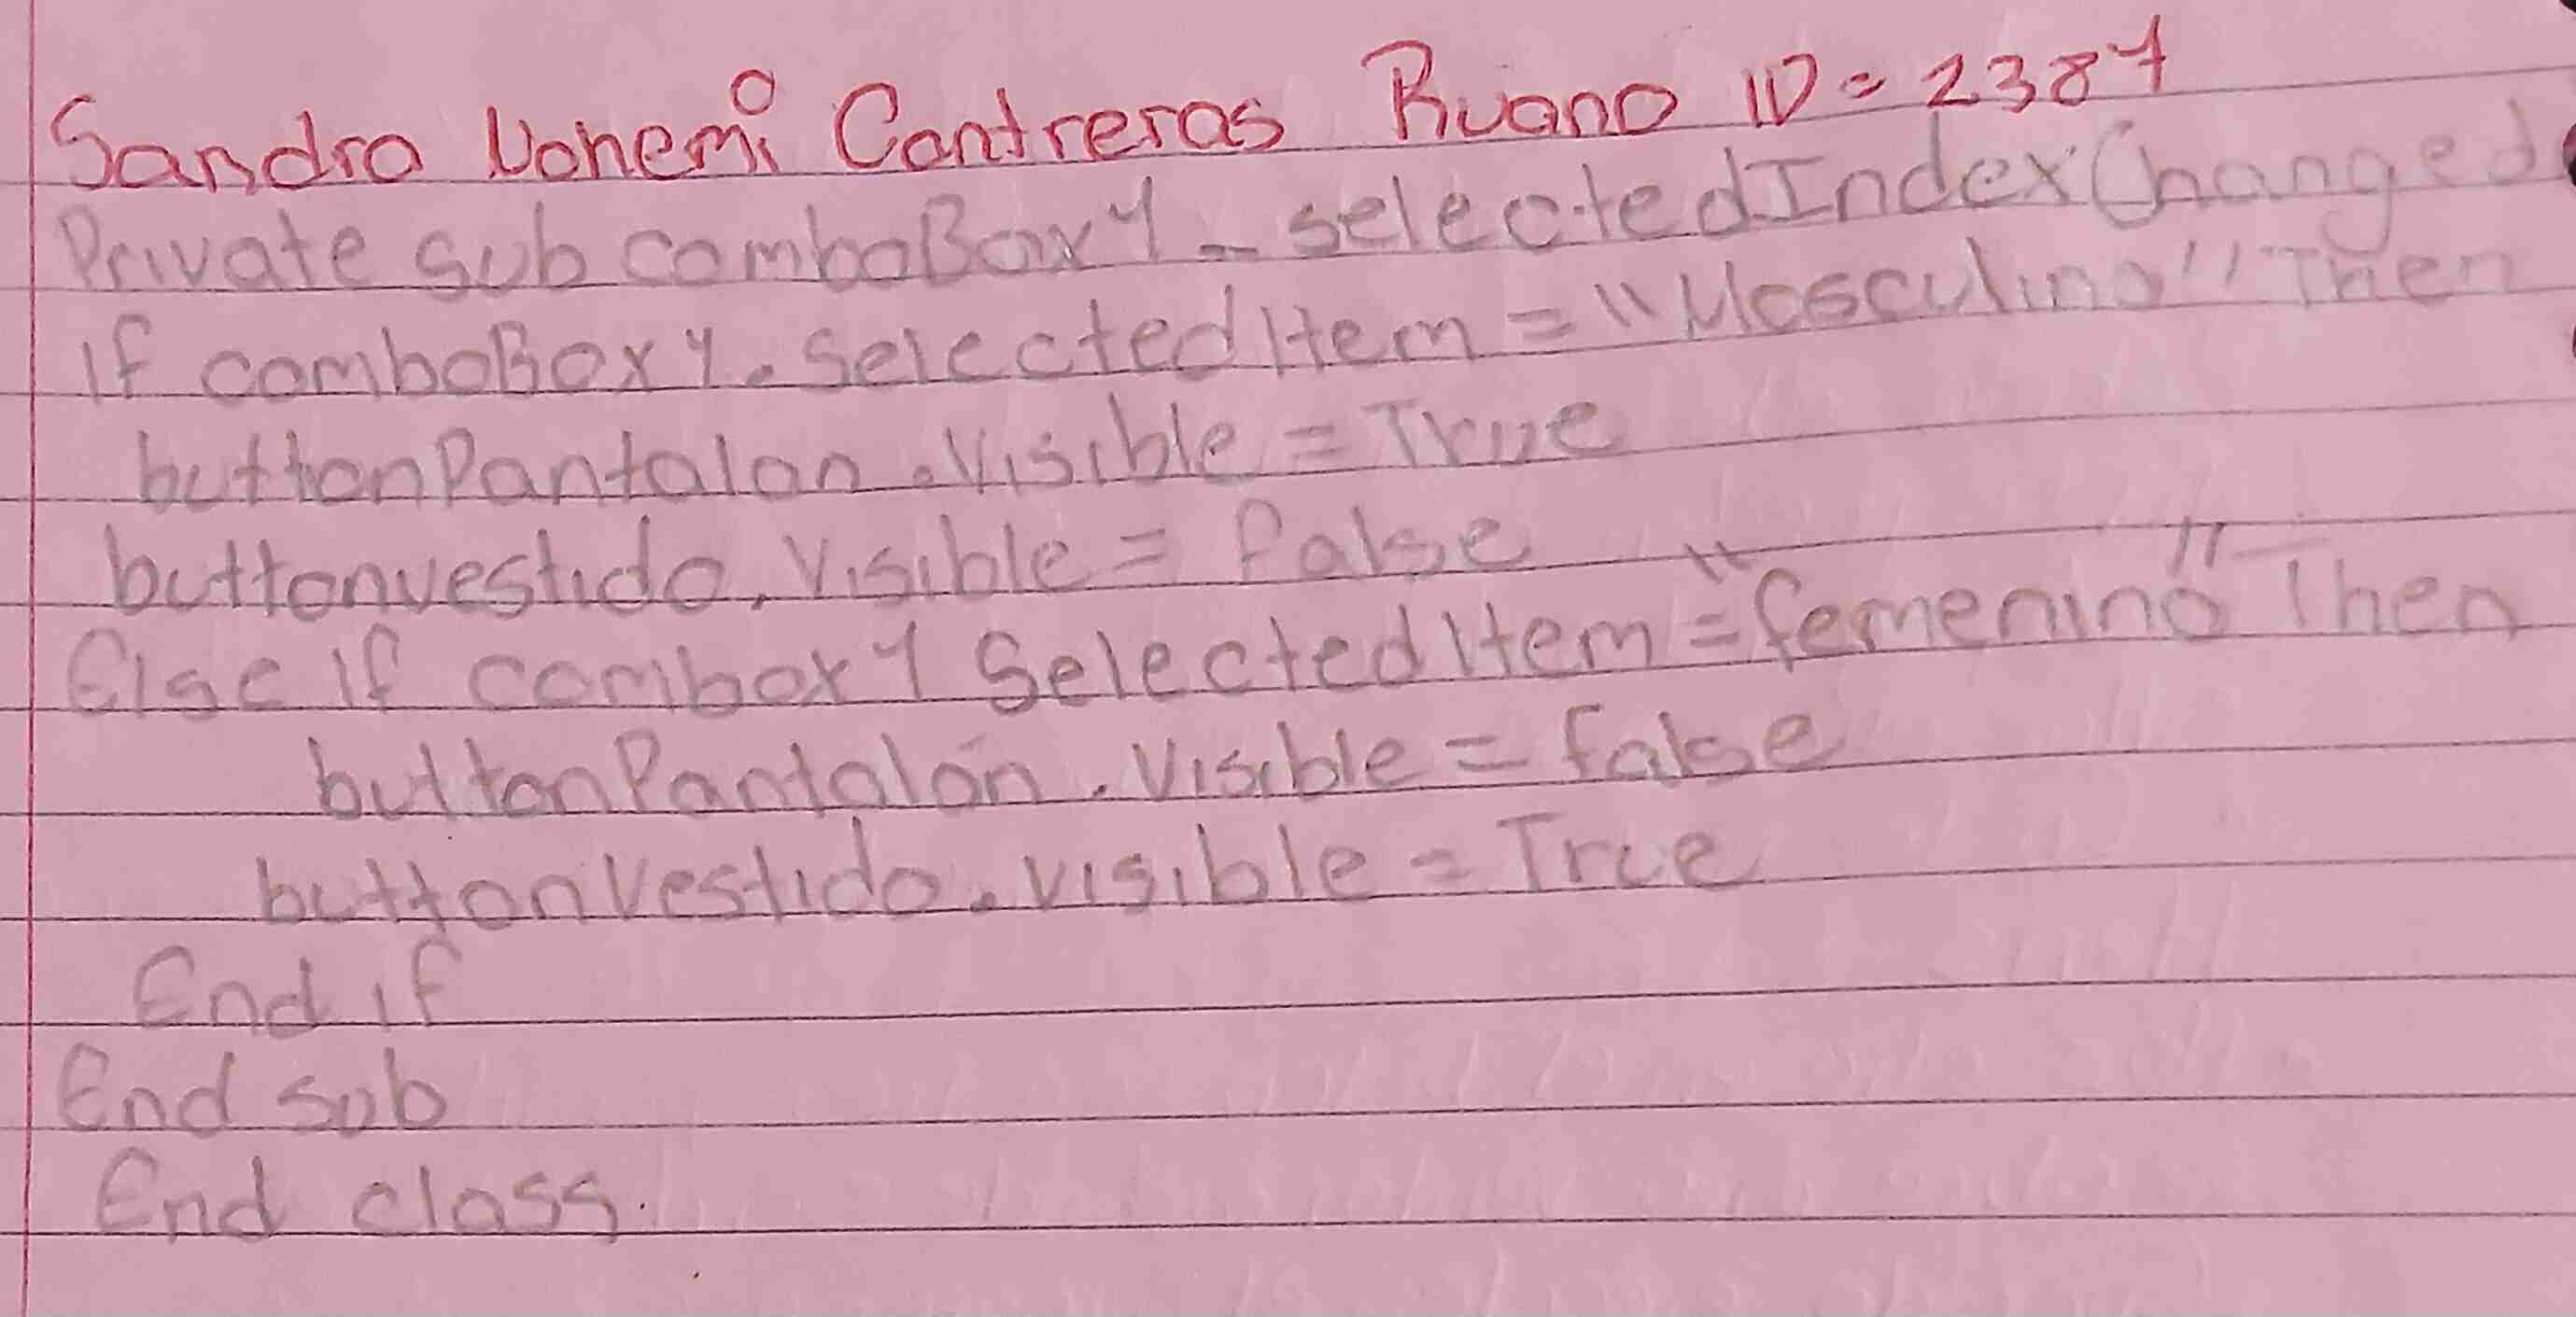 Sandra Nohemi Contreras Ruano ID = 2387
Private sub comboBox1_selectedIndexChanged
If comboBox1.SelectedItem = "Masculino" Then
buttonPantalon.Visible = True
buttonvestido.Visible = False
Else if combox1 SelectedItem = "femenino" Then
buttonPantalón.Visible = false
buttonVestido.visible = True
End if
End sub
End class.